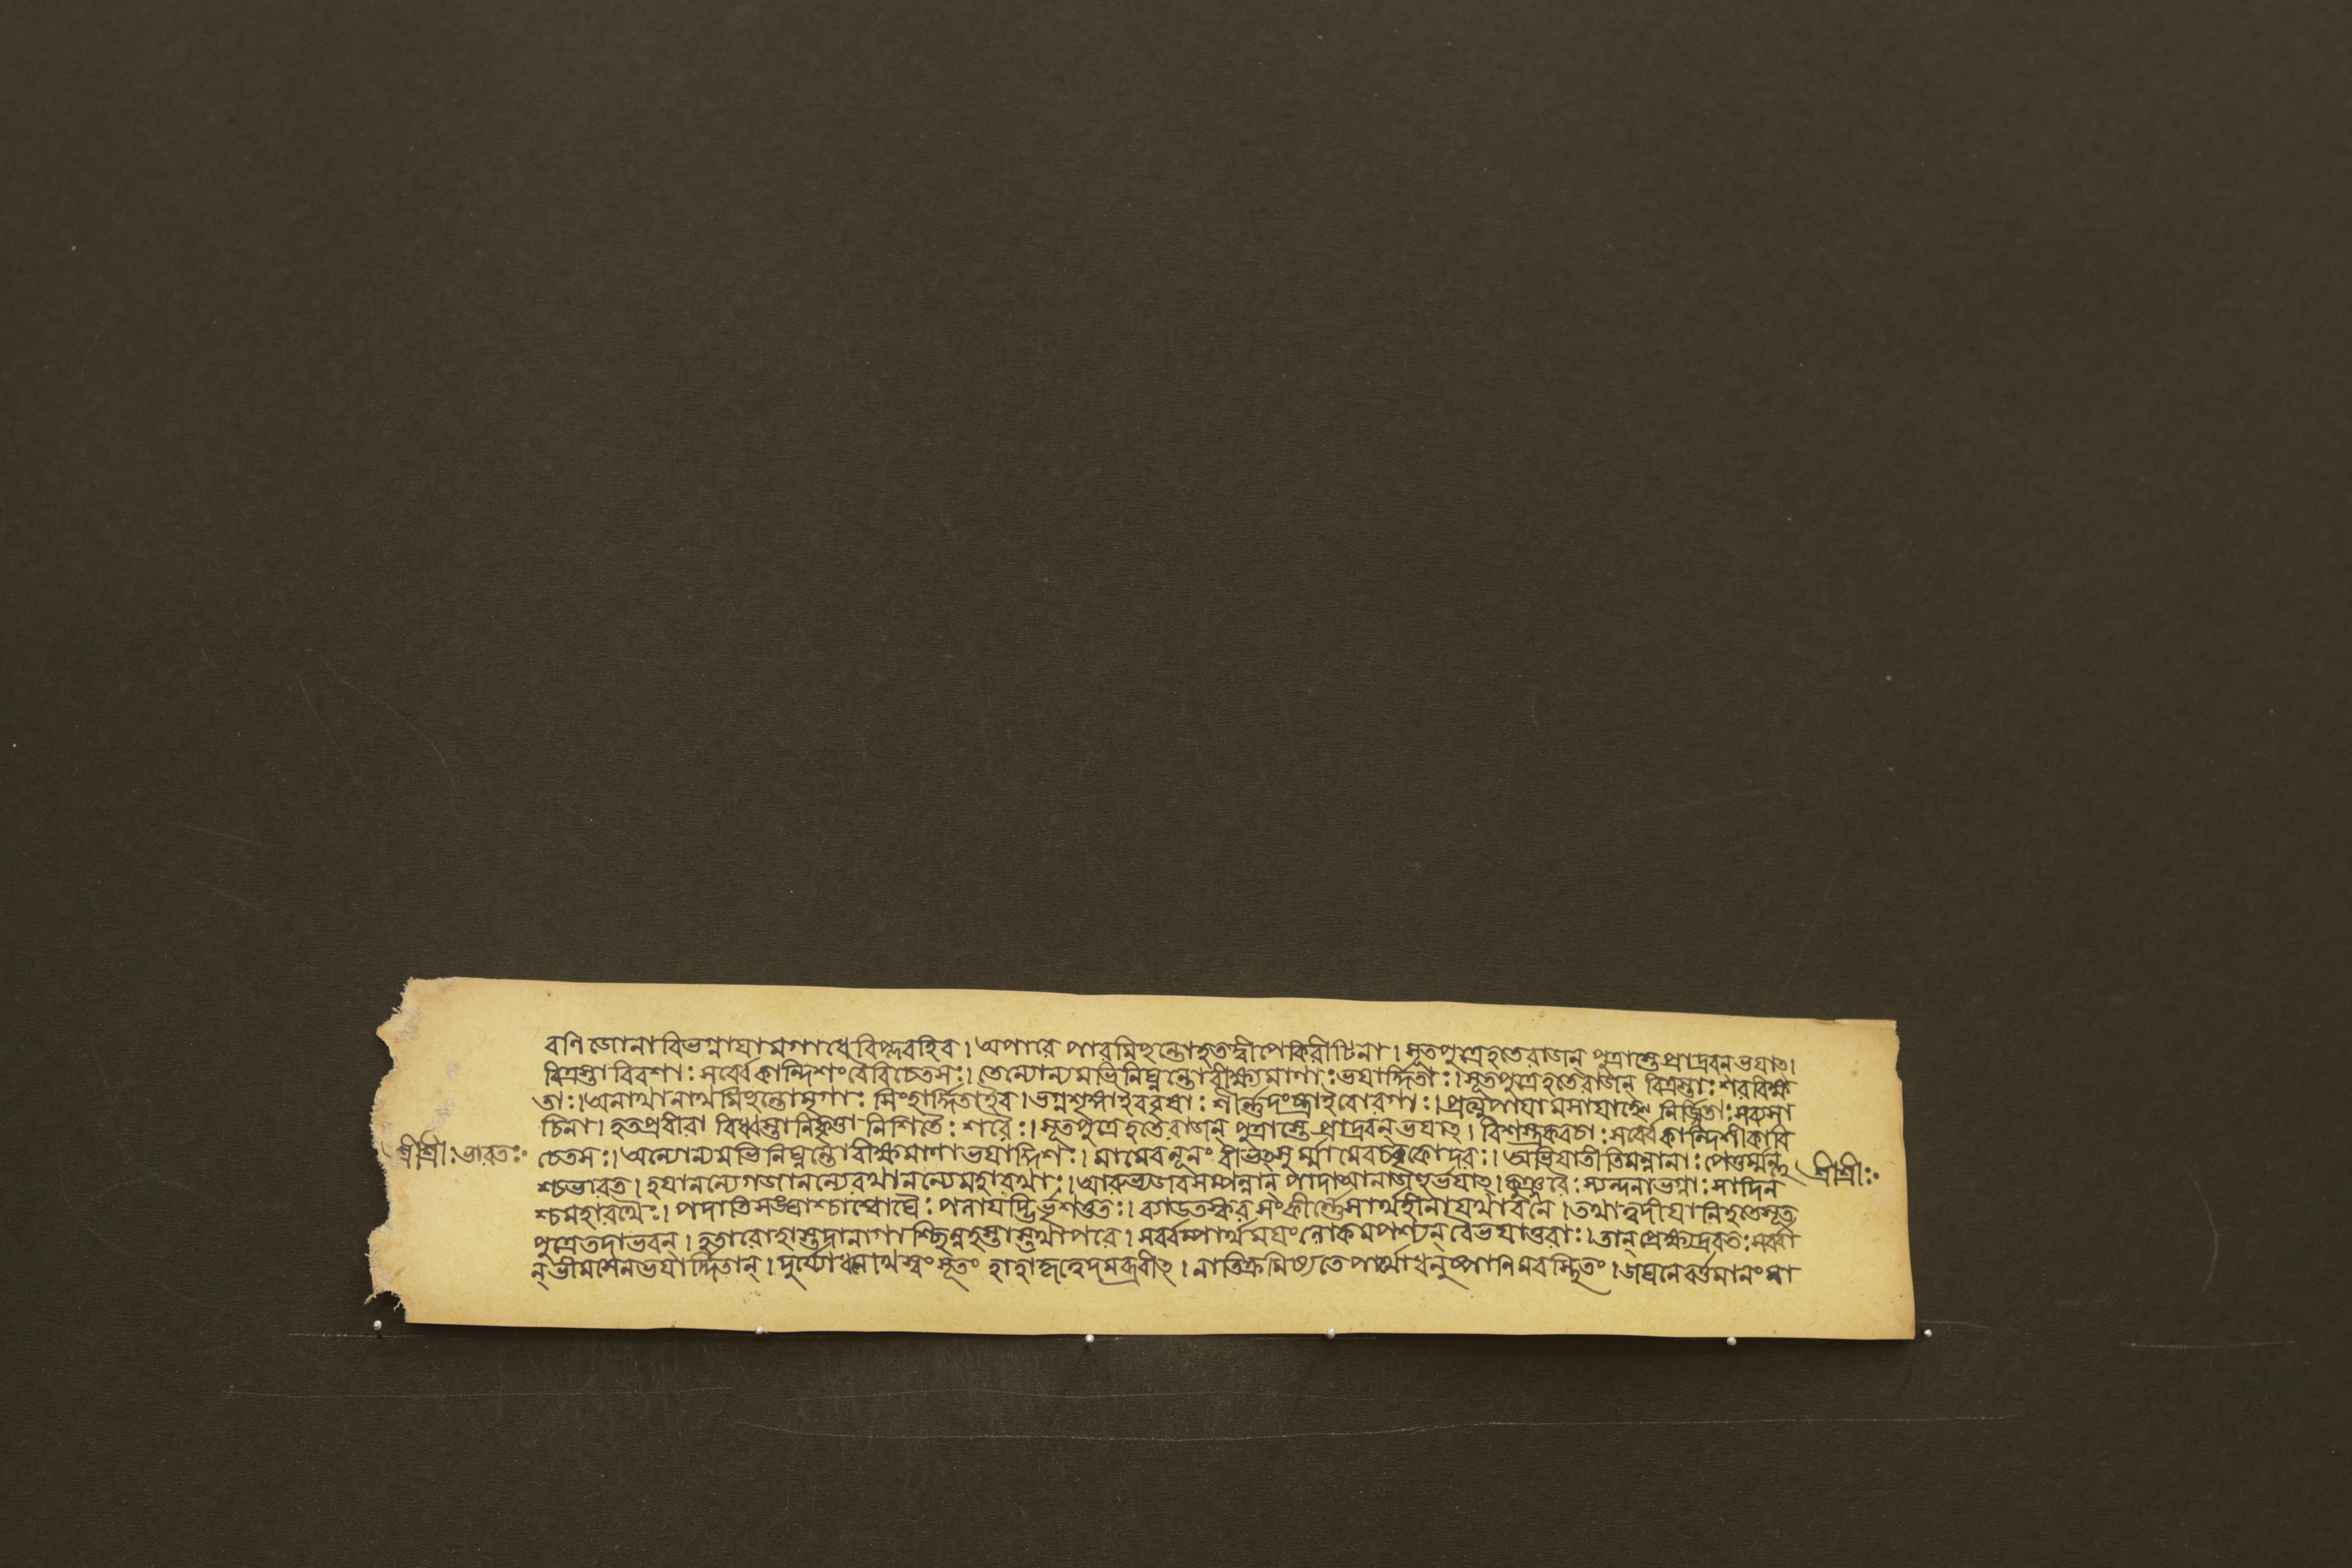 বণিজোনাবিভগ্নাযামগাধেবিপ্লবাইব। অপারে পারমিছন্তোহতেদ্বীপেকিরীটিনা। সূতপুত্রেহতেরাজন্ পুত্রাস্তেপ্রাদ্রবনভযাৎ।
বিত্রস্তাবিবশা: সর্ব্বেকান্দিশংবৈবিচেতস:। তেন্যোন্যমভিনিঘ্নন্তোবীক্ষ্যমাণা: ভযার্দ্দিতা:। সূতপুত্রেহতেরাজন্ বিত্রস্তা: শরবিক্ষ
তা:। অনাথানাথমিছন্তোমৃগা: সিংহার্দ্দিতাইব। ভগ্নশৃঙ্গাইববৃষা: শীর্ন্নদংষ্ট্রাইবোরগা:। প্রত্যুপাযামসাযাহ্নে নির্জ্জিতা: সব্যসা
চিনা। হতপ্রবীরা বিধ্বস্তানিকৃত্তা নিশিতৈ: শরৈ:। সূতপুত্রেহতেরাজন্ পুত্রাস্তেপ্রাদ্রবন্ভযাৎ। বিশস্ত্রকবচা: সর্ব্বেকান্দিশীকাবি
শ্রীশ্রী: ভারত: চেতস:। অন্যোন্যমভিনিঘ্নন্তোবীক্ষমাণাভযাদ্দিশ:। মামেবনূনং বীভৎসুর্ম্মামেবচবৃকোদর:। অভিযাতীতিমন্বানা: পেতুর্ম্মম্লু শ্রীশ্রী:
শ্চভারত। হযানন্যেগজানন্যেরথানন্যেমহারথা:। আরুহ্যজবসম্পন্নান্ পাদাতানাজহুর্ভযাৎ। কুঞ্জরৈ: স্যন্দনাভগ্না: সাদিন
শ্চমহারথৈ:। পদাতিসঙ্ঘাশ্চাশ্বৌঘৈ: পলাযদ্ভির্ভৃশংহতা:। ব্যালতস্করসংকীর্ন্নেসার্থহীনাযথাবনে। তথাত্বদীযানিহতেসূত
পুত্রেতদাভবন্। হতারোহাস্তদানাগাশ্ছিন্নহস্তাস্তথাপরে। সর্ব্বম্পার্থমযংলোকমপশ্যন্ বৈভযাতুরা:। তান্প্রেক্ষ্যদ্রবত: সর্ব্বা
ন্ ভীমসেনভযার্দ্দিতান্। দুর্য্যোধনোথস্বংসূতং হাহাকৃত্বেদমব্রবীৎ। নাতিক্রমিষ্যতেপার্থোধনুষ্পানিমবস্থিতং। জঘনেবর্ত্তমানংমা